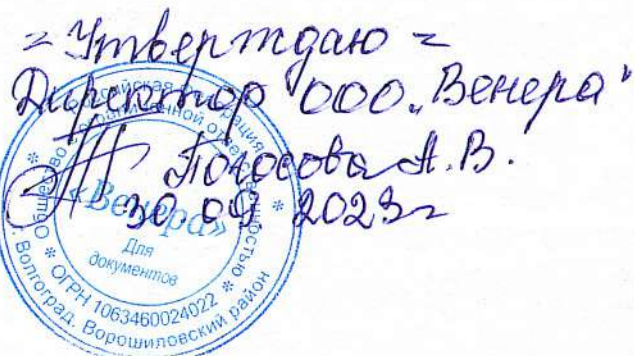 = Утверждаю =
Директор ООО „Венера"
Погосова А.В.
30.09 2023г
Российская Федерация
Общество с ограниченной ответственностью
«Венера»
Для
документов
* ОГРН 1063460024022 *
г. Волгоград, Ворошиловский район